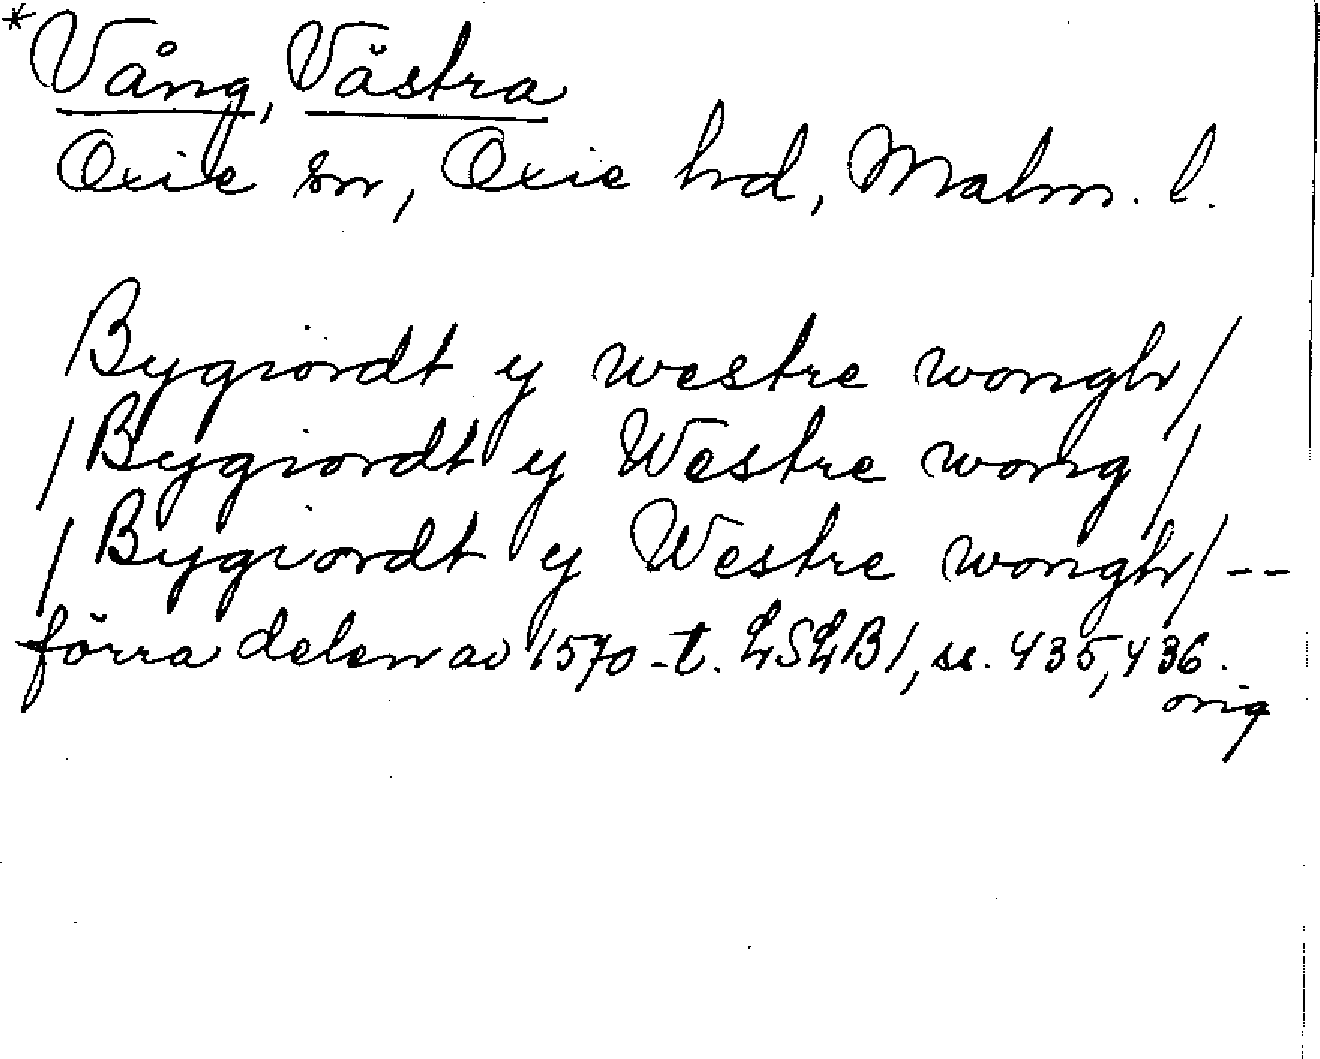 *Vång, Västra
Oxie sn, Oxie hrd, Malm. l.
Bygiordt y westre wongh/
/Bygiordt y Westre wong/
/Bygiordt y Westre wongh/--
förra delen av 1570-t. LSLB1, ss. 435, 436.
orig